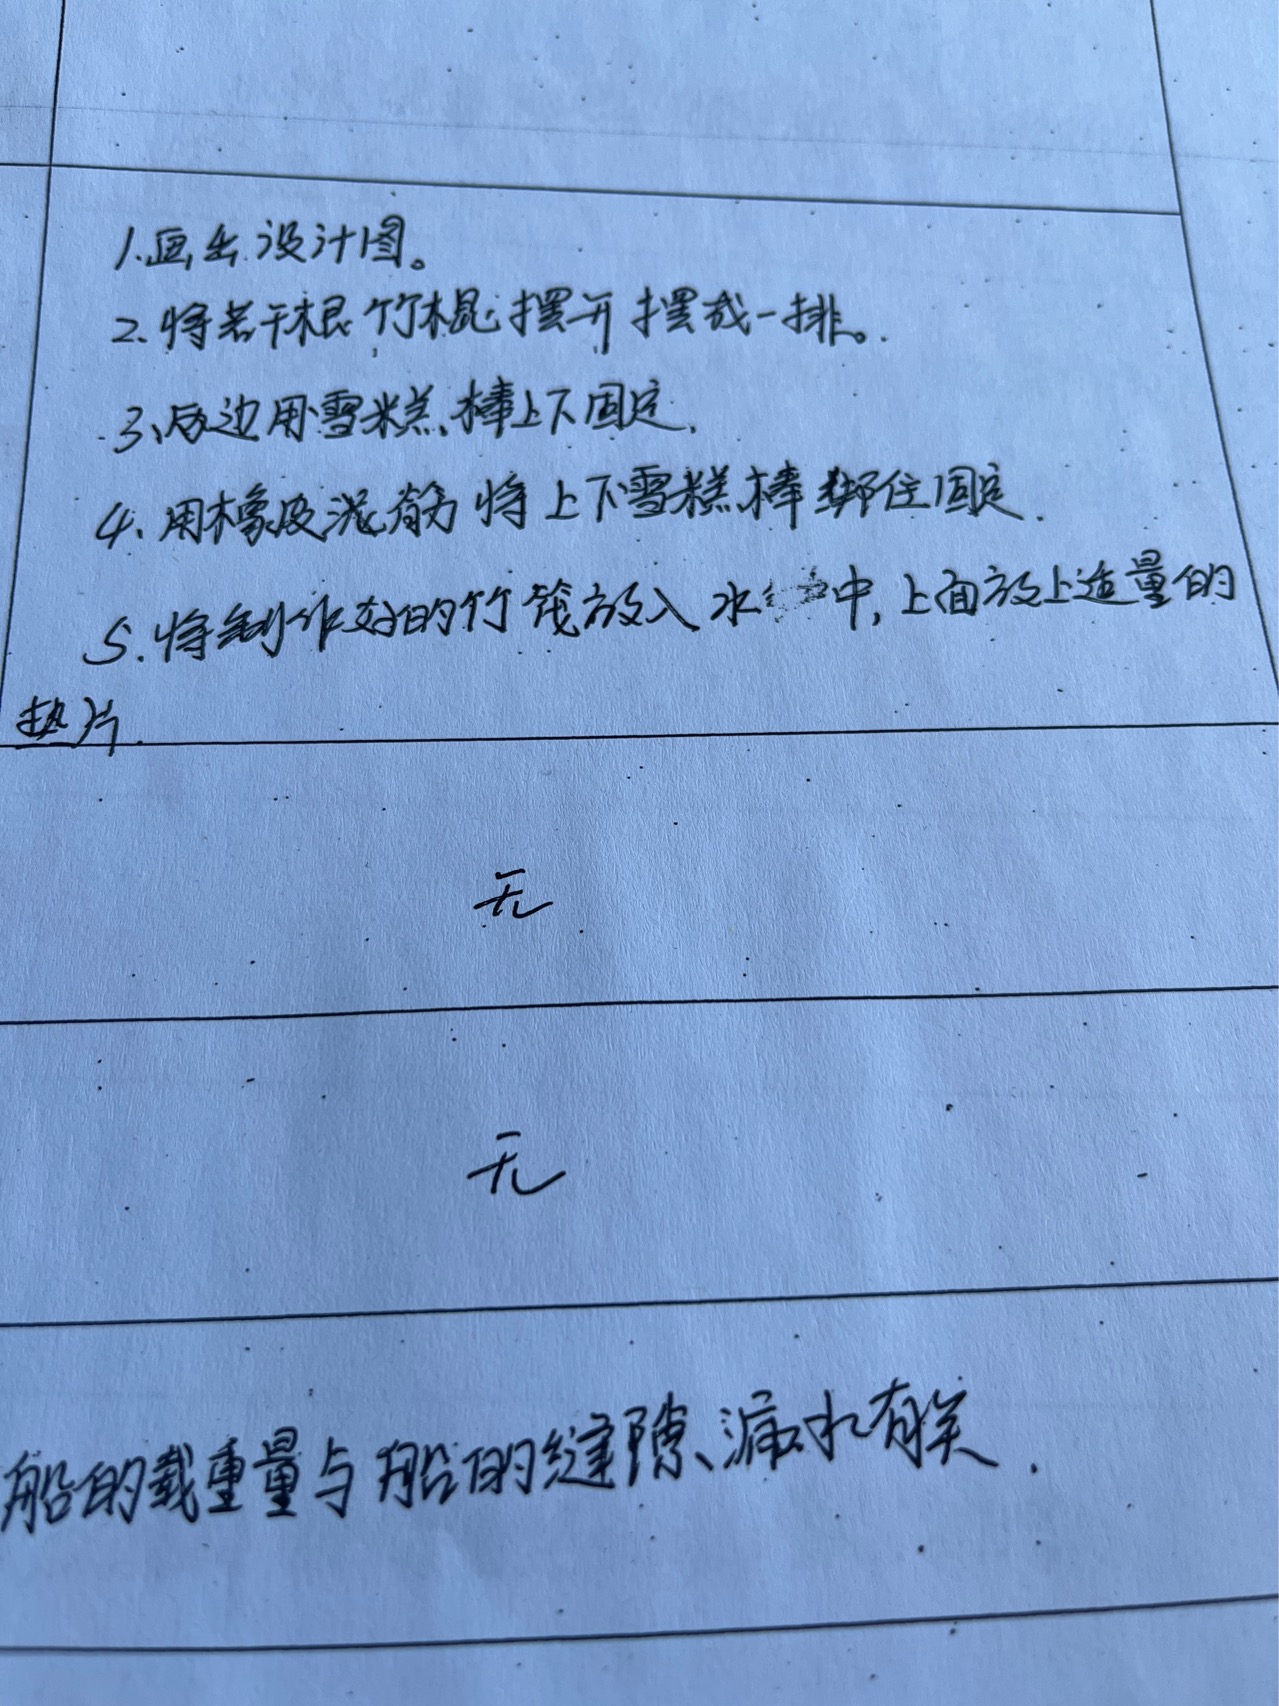 1.画出设计图。
2.将若干根竹棍摆开摆成一排。
3、后边用雪糕棒上下固定.
4.用橡皮泥筋将上下雪糕棒绑住固定.
5.将制作好的竹筏放入水中,上面放上适量的
垫片.
无
无
船的载重量与船的缝隙、漏水有关.